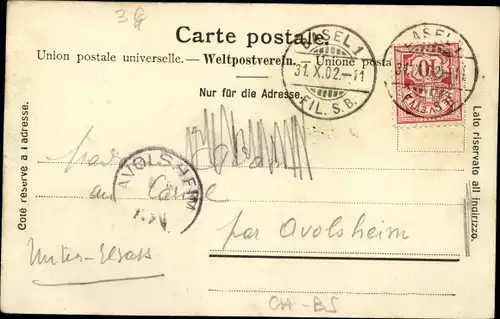 3
Carte postale.
Union postale universelle. — Weltpostverein. — Unione posta
Nur für die Adresse.
BASEL 1
31. X. 02. – 11
FIL. S. B.
BASEL 1
31. X. 02. –
FIL. S. B.
10
HELVETIA
Côté réservé à l'adresse.
Lato riservato all'indirizzo.
AVOLSHEIM
au
par Avolsheim
Unter-Elsass
CH-BS